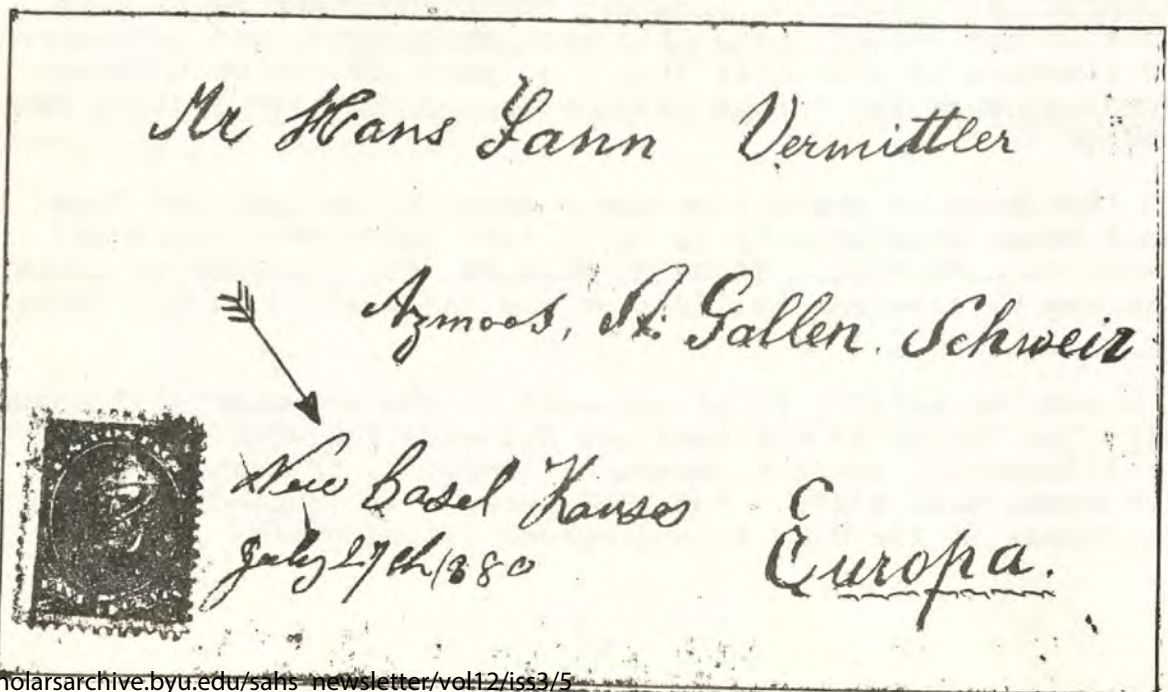 Mr Hans Gann Vermittler
Azmoos, St. Gallen. Schweiz
New Basel Kansas
July 27th 1880
Europa.
holarsarchive.byu.edu/sahs_newsletter/vol12/iss3/5